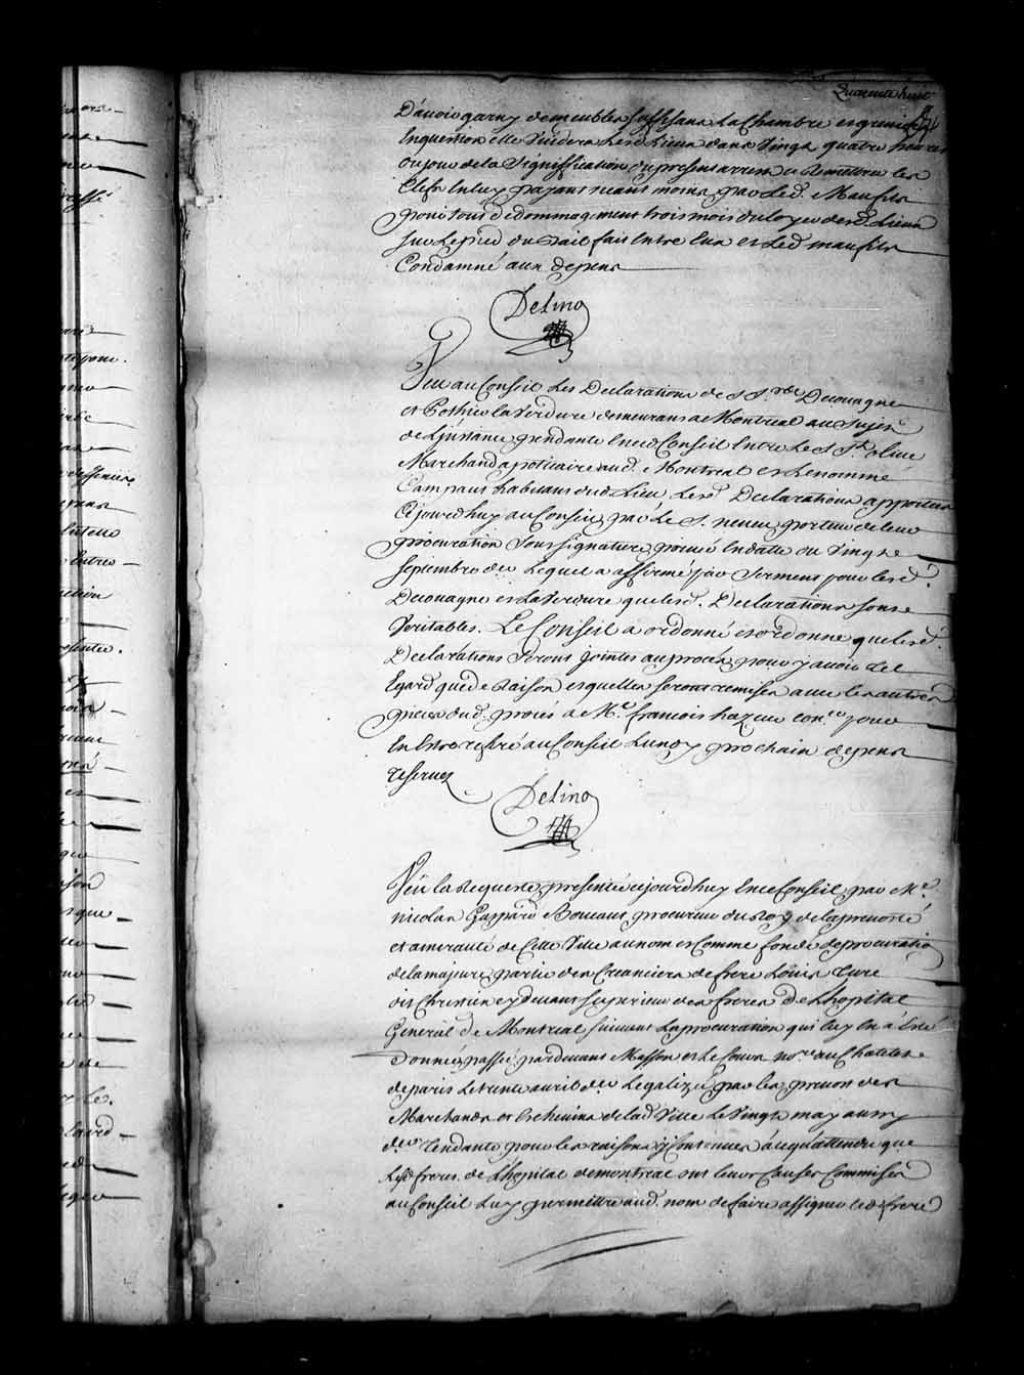 Quarante huit
D'avoir garny de meubles suffisans la Chambre et grenier
En question elle Vuidera lesd. Lieux dans Vingt quatre heures
du jour de la Signiffication du present arrest et Remettra les
Clefs En luy payant neant moins par led. Maufils
pour tous dedommagement trois mois du loyer desd. Lieux
sur le pied du Bail fait Entre Eux et led. maufils
Condamné aux depens
Delino
Veu au Conseil Les Declarations de Decouagne
et Pothier laVerdure demeurans a Montreal au Sujet
de Linstance pendante En ce Conseil Entre Le S. St. olive
Marchand apoticaire aud. Montreal et Le nommé
Campau habitans dud. Lieu, Lesd. Declarations apportées
Cejourdhuy au Conseil par Le S. neveu porteur de leur
procuration Sous signature privée En datte du Vingt
septembre der. Lequel a affirmé par Serment pour lesd.
Decouagne et LaVerdure que lesd. Declarations sont
Veritables. Le Conseil a ordonné et ordonne que lesd.
Declarations Seront jointes au procés pour y avoir tel
Egard que de Raison et quelles seront remises avec les autres
pieces dud. procés a Me. francois hazeur con.er pour
En Estre referé au Conseil Lundy prochain depens
reservez
Delino
Veu la Requeste presentée cejourdhuy En ce Conseil par Me.
nicolas Gaspard Boucault procureur du Roy de la prevosté
et amirauté de Cette Ville au nom et Comme fondé de procuration
de la majeure partie des Creanciers de frere Louis Turc
dit Chrestien cy devant superieur des freres de Lhopital
General de Montreal suivant La procuration qui luy En a Esté
Donnée passée pardevant Masson et Le Cour no.res au Chatelet
de paris Le trente avril der. Legalizé par les prevost des
Marchands et Eschevins de lad. Ville Le Vingt may aussy
der. Tendante pour les raisons y Contenues a ce qu'attendu que
Lesd. freres de Lhopital de montreal ont leurs Causes Commises
au Conseil Luy permettre aud. nom de faire assigner led. frere